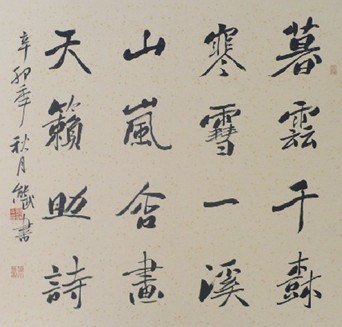 暮雲千森
寒雪一溪
山嵐含畫
天籟助詩
辛卯年秋月 書